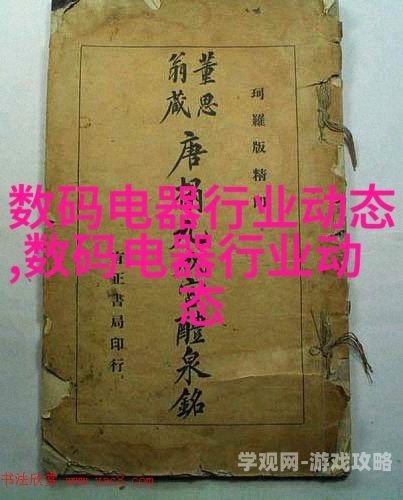 珂羅版精印
董思
翁藏
唐
醴泉銘
有正書局印行
数码电器行业动态
,数码电器行业动
态
书法欣赏 www.yac8.com
学观网-游戏攻略